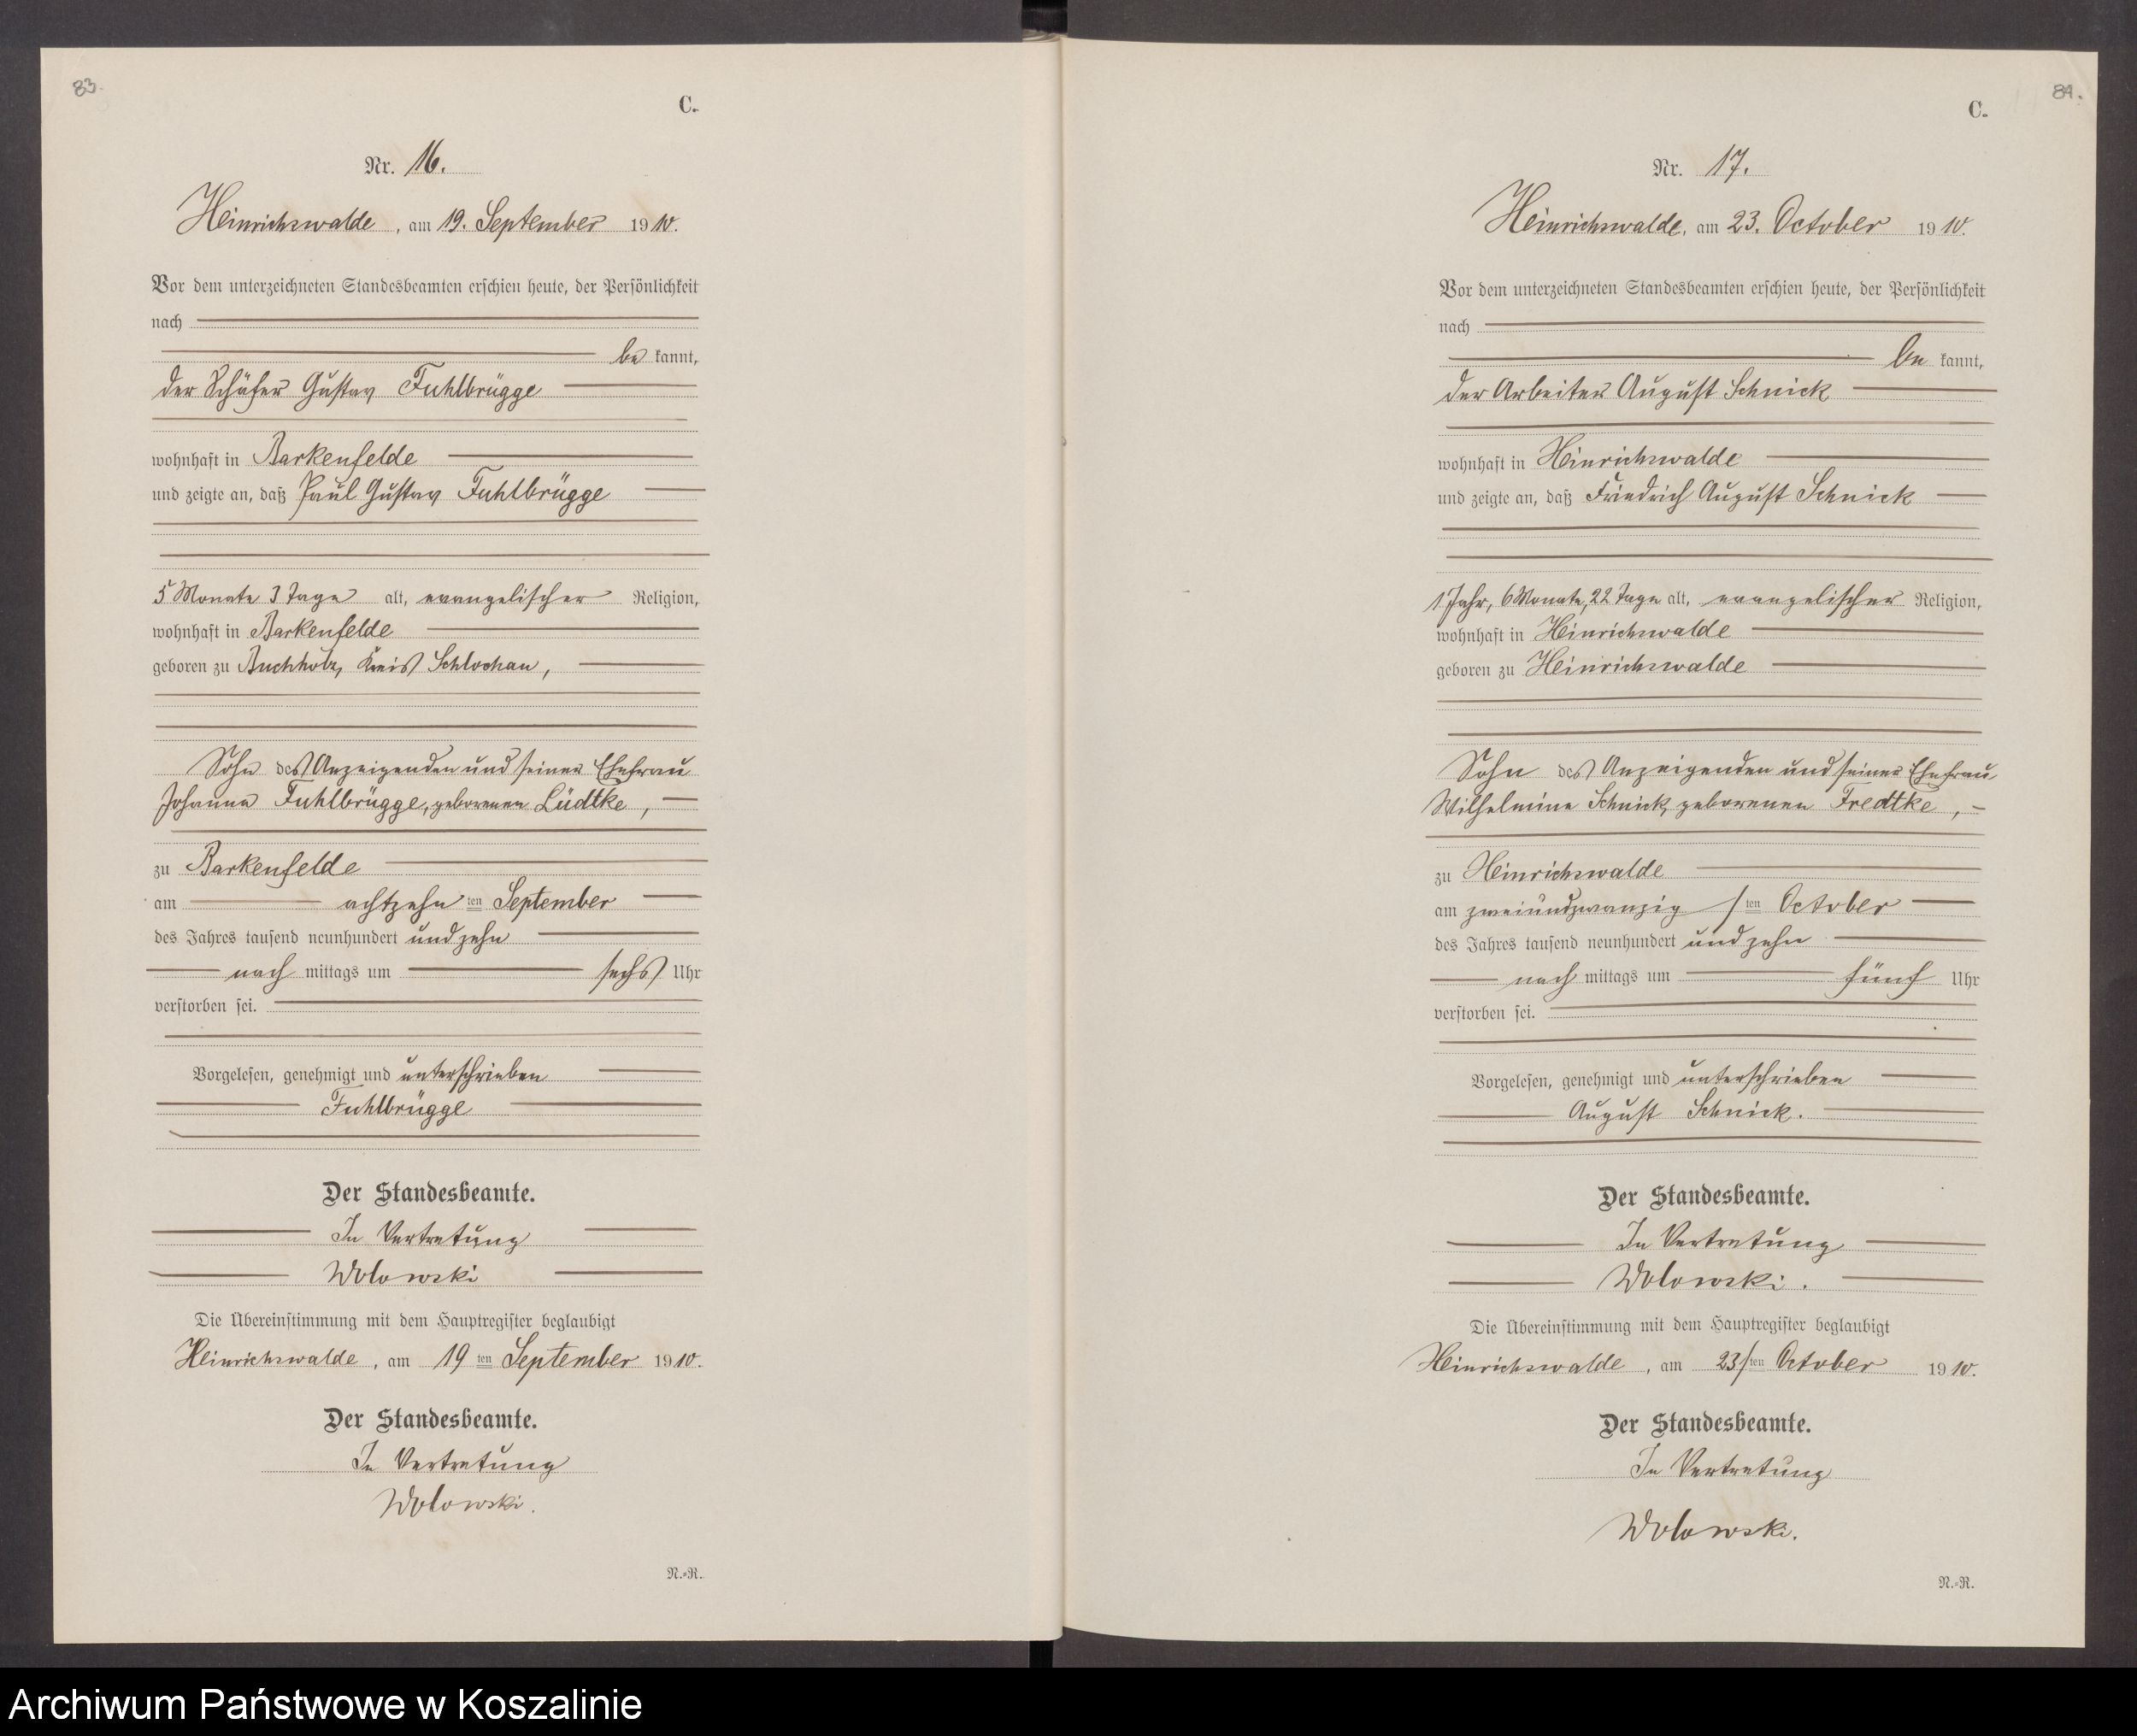 83.
C.
Nr. 16.
Heinrichswalde, am 19. September 1910.
Vor dem unterzeichneten Standesbeamten erschien heute, der Persönlichkeit
nach
be kannt,
der Schäfer Gustav Fuhlbrügge
wohnhaft in Barkenfelde
und zeigte an, daß Paul Gustav Fuhlbrügge
5 Monate 3 Tage alt, evangelischer Religion,
wohnhaft in Barkenfelde
geboren zu Buchholz, Kreis Schlochau,
Sohn des Anzeigenden und seiner Ehefrau
Johanna Fuhlbrügge, geborenen Lüdtke,
zu Barkenfelde
am achtzehn ten September
des Jahres tausend neunhundert und zehn
nach mittags um sechs Uhr
verstorben sei.
Vorgelesen, genehmigt und unterschrieben
Fuhlbrügge
Der Standesbeamte.
In Vertretung
Wolowski
Die Übereinstimmung mit dem Hauptregister beglaubigt
Heinrichswalde, am 19 ten September 1910.
Der Standesbeamte.
In Vertretung
Wolowski.
N.-R.
84.
C.
Nr. 17.
Heinrichswalde, am 23. October 1910.
Vor dem unterzeichneten Standesbeamten erschien heute, der Persönlichkeit
nach
be kannt,
der Arbeiter August Schnick
wohnhaft in Heinrichswalde
und zeigte an, daß Friedrich August Schnick
1 Jahr, 6 Monate, 22 Tage alt, evangelischer Religion,
wohnhaft in Heinrichswalde
geboren zu Heinrichswalde
Sohn des Anzeigenden und seiner Ehefrau
Wilhelmine Schnick, geborenen Fredtke,
zu Heinrichswalde
am zweiundzwanzig sten October
des Jahres tausend neunhundert und zehn
nach mittags um fünf Uhr
verstorben sei.
Vorgelesen, genehmigt und unterschrieben
August Schnick.
Der Standesbeamte.
In Vertretung
Wolowski.
Die Übereinstimmung mit dem Hauptregister beglaubigt
Heinrichswalde, am 23sten October 1910.
Der Standesbeamte.
In Vertretung
Wolowski.
N.-R.
Archiwum Państwowe w Koszalinie